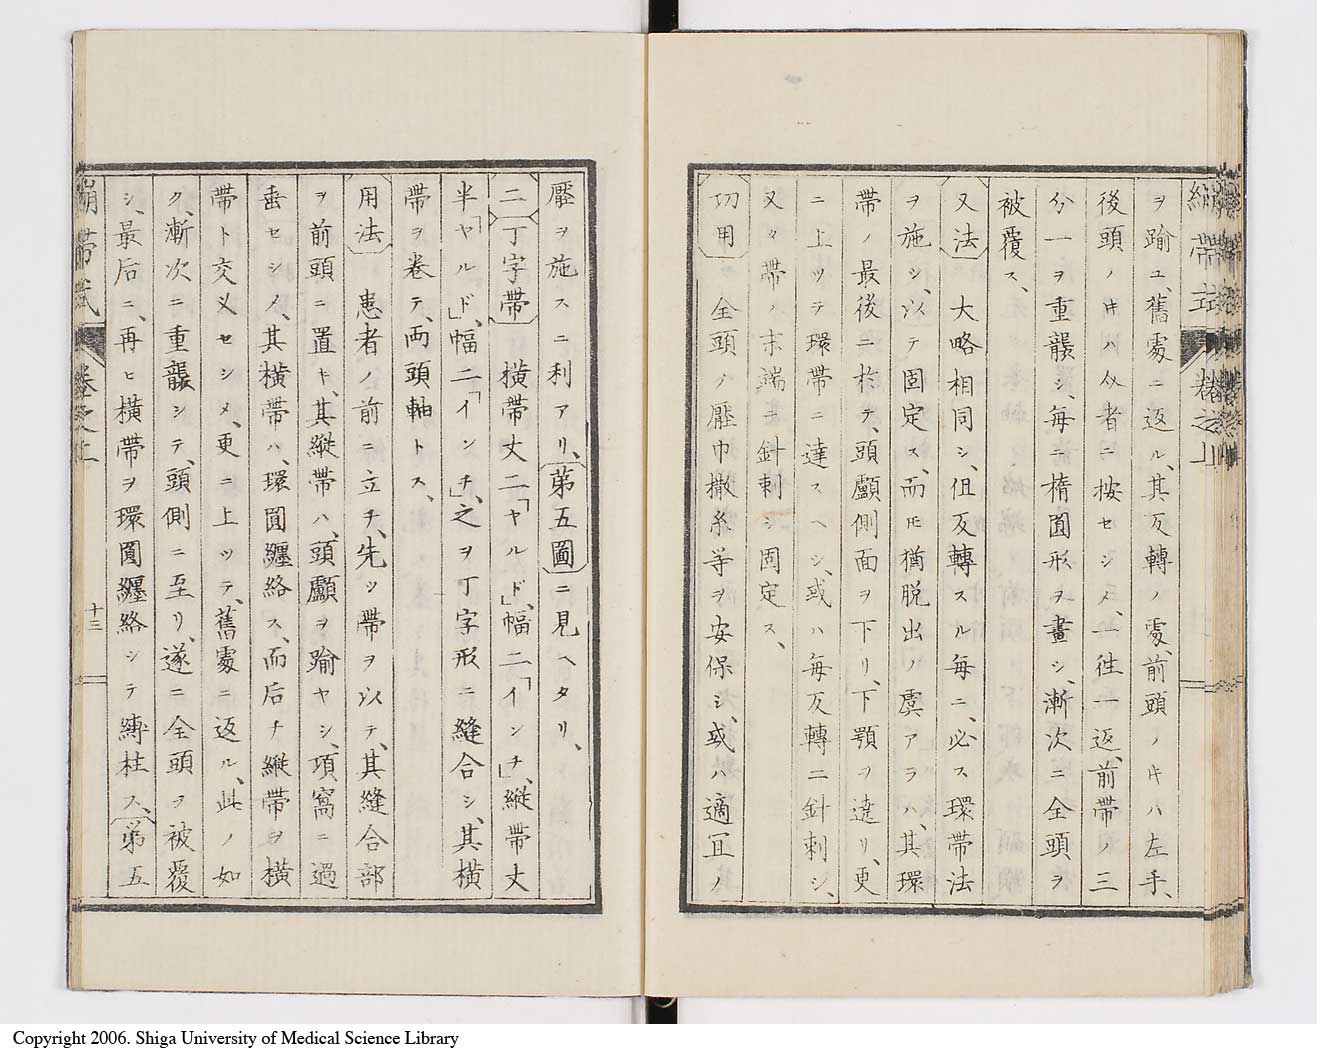 繃帶式 卷之上
ヲ踰ユ、舊處ニ返ル、其反轉ノ處、前頭ノ𪜈ハ左手、
後頭ノ𪜈ハ㕥者ニ按セシメ、一徃一返、前帶ノ三
分一ヲ重襲シ、毎ニ楕圓形ヲ畫シ、漸次ニ全頭ヲ
被覆ス、
又法 大略相同シ、但反轉スル毎ニ、必ス環帶法
ヲ施シ、以テ固定ス、而𪜈猶脱出ノ虞アラハ、其環
帶ノ最後ニ於テ、頭顱側面ヲ下リ、下顎ヲ遶リ、更
ニ上ツテ環帶ニ達スヘシ、或ハ毎反轉ニ針刺シ、
又々帶ノ末端ニ針刺シ固定ス、
切用 全頭ノ壓巾撒糸等ヲ安保シ、或ハ適宜ノ
壓ヲ施スニ利アリ、第五圖ニ見ヘタリ、
二 丁字帶 横帶丈二「ヤルド」、幅二「インチ」、縱帶丈
半「ヤルド」、幅二「インチ」、之ヲ丁字形ニ縫合シ、其横
帶ヲ卷テ、両頭軸トス、
用法 患者ノ前ニ立チ、先ツ帶ヲ以テ、其縫合部
ヲ前頭ニ置キ、其縱帶ハ、頭顱ヲ踰ヤシ、項窩ニ過
垂セシメ、其横帶ハ、環圓纒絡ス、而后チ縱帶ヲ横
帶ト交叉セシメ、更ニ上ツテ、舊處ニ返ル、此ノ如
ク、漸次ニ重襲シテ、頭側ニ至リ、遂ニ全頭ヲ被覆
シ、最后ニ、再ヒ横帶ヲ環圓纒絡シテ縛柱ス、第五
繃帶式 卷之上
十三
Copyright 2006. Shiga University of Medical Science Library